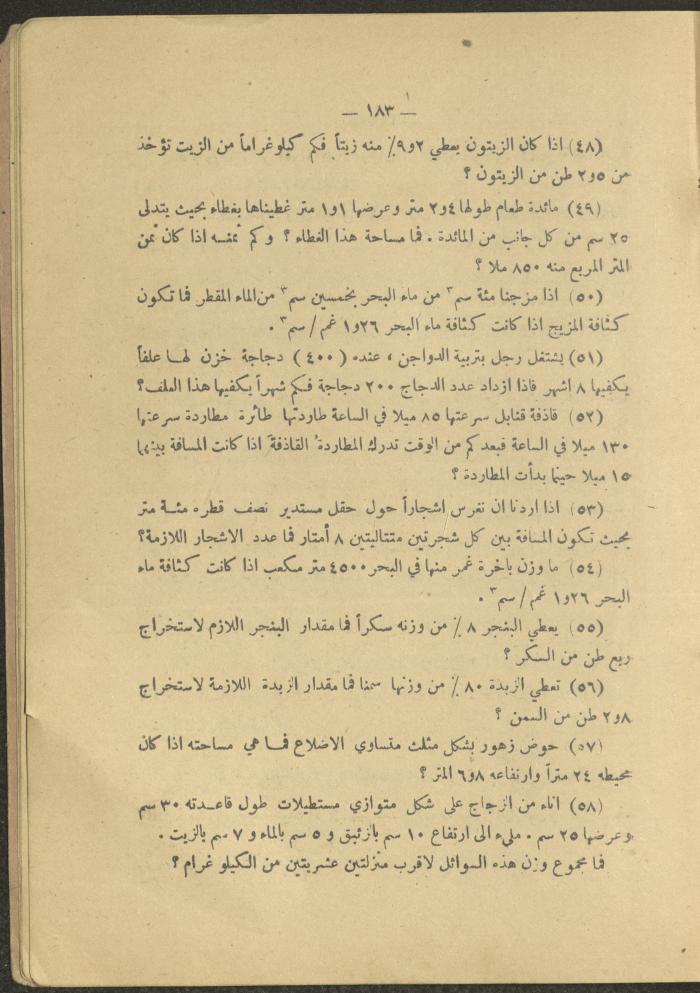 — ١٨٣ —
(٤٨) اذا كان الزيتون يعطي ٢و٩٪ منه زيتاً فكم كيلوغراماً من الزيت تؤخذ
من ٥و٢ طن من الزيتون ؟
(٤٩) مائدة طعام طولها ٤و٢ متر وعرضها ١و١ متر غطيناها بغطاء بحيث يتدلى
٢٥ سم من كل جانب من المائدة . فما مساحة هذا الغطاء ؟ وكم ثمنه اذا كان ثمن
المتر المربع منه ٨٥٠ ملا ؟
(٥٠) اذا مزجنا مئة سم٣ من ماء البحر بخمسين سم٣ من الماء المقطر فما تكون
كثافة المزيج اذا كانت كثافة ماء البحر ٢٦و١ غم/سم٣ .
(٥١) يشتغل رجل بتربية الدواجن ، عنده (٤٠٠) دجاجة خزن لها علفاً
يكفيها ٨ اشهر فاذا ازداد عدد الدجاج ٢٠٠ دجاجة فكم شهراً يكفيها هذا العلف؟
(٥٢) قاذفة قنابل سرعتها ٨٥ ميلا في الساعة طاردتها طائرة مطاردة سرعتها
١٣٠ ميلا في الساعة فبعد كم من الوقت تدرك المطاردةُ القاذفةَ اذا كانت المسافة بينهما
١٥ ميلا حينما بدأت المطاردة ؟
(٥٣) اذا اردنا ان نغرس اشجاراً حول حقل مستدير نصف قطره مئة متر
بحيث تكون المسافة بين كل شجرتين متتاليتين ٨ أمتار فما عدد الاشجار اللازمة؟
(٥٤) ما وزن باخرة غمر منها في البحر ٤٥٠٠ متر مكعب اذا كانت كثافة ماء
البحر ٢٦و١ غم/سم٣ .
(٥٥) يعطي البنجر ٨٪ من وزنه سكراً فما مقدار البنجر اللازم لاستخراج
ربع طن من السكر ؟
(٥٦) تعطي الزبدة ٨٠٪ من وزنها سمنا فما مقدار الزبدة اللازمة لاستخراج
٨و٢ طن من السمن ؟
(٥٧) حوض زهور بشكل مثلث متساوي الاضلاع فما هي مساحته اذا كان
محيطه ٢٤ متراً وارتفاعه ٨و٦ المتر ؟
(٥٨) اناء من الزجاج على شكل متوازي مستطيلات طول قاعدته ٣٠ سم
وعرضها ٢٥ سم . مليء الى ارتفاع ١٠ سم بالزئبق و ٥ سم بالماء و ٧ سم بالزيت .
فما مجموع وزن هذه السوائل لاقرب منزلتين عشريتين من الكيلو غرام ؟